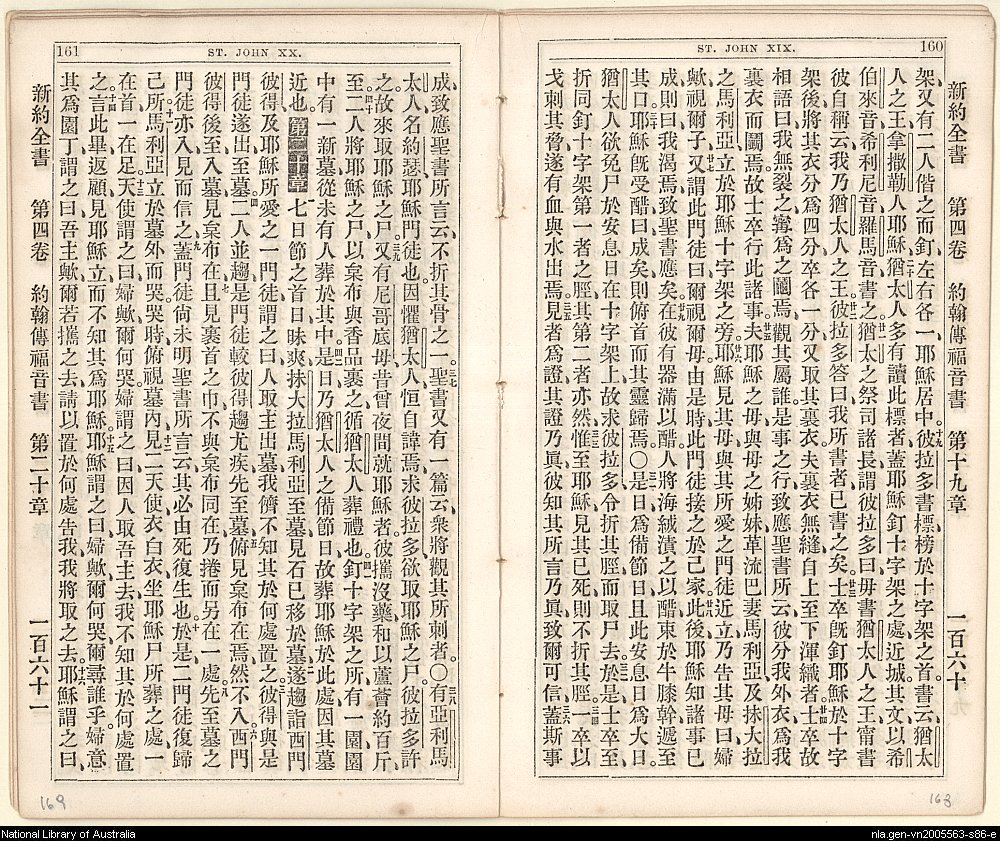 ST. JOHN XIX.
160
新約全書 第四卷 約翰傳福音書 第十九章 一百六十
架、又有二人偕之而釘、左右各一、耶穌居中。十九彼拉多書標榜於十字架之首。書云、猶太
人之王、拿撒勒人耶穌。二十猶太人多有讀此標者、蓋耶穌釘十字架之處、近城、其文以希
伯來音、希利尼音、羅馬音書之。二一猶太之祭司諸長、謂彼拉多曰、毋書猶太人之王、甯書
彼自稱云、我乃猶太人之王。二二彼拉多答曰、我所書者、已書之矣。二三士卒旣釘耶穌於十字
架後、將其衣分爲四分、卒各一分、又取其裏衣。夫裏衣無縫、自上至下渾織者。二四士卒故
相語曰、我無裂之、甯爲之鬮焉、觀其屬誰。是事之行、致應聖書所云、彼分我外衣、爲我
裏衣而鬮焉。故士卒行此諸事。二五夫耶穌之母、與母之姊妹、革流巴妻馬利亞、及抹大拉
之馬利亞、立於耶穌十字架之旁。二六耶穌見其母、與其所愛之門徒近立、乃告其母曰、婦
歟、視爾子。二七又謂此門徒曰、爾視爾母。由是時此門徒接之於己家。二八此後耶穌知諸事已
成、則曰、我渴焉、致聖書應矣。二九在彼有器滿以醋、人將海絨漬之以醋、束於牛膝幹、遞至
其口。三十耶穌旣受醋、曰、成矣、則俯首而其靈歸焉。〇三一是日爲備節日、且此安息日爲大日。
猶太人欲免尸於安息日在十字架上、故求彼拉多令折其脛而取尸去。三二於是士卒至、
折同釘十字架第一者之脛、其第二者亦然。三三惟至耶穌、見其已死、則不折其脛。三四一卒以
戈刺其脅、遂有血與水出焉。三五見者爲證、其證乃眞、彼知其所言乃眞、致爾可信。三六蓋斯事
163
ST. JOHN XX.
161
成、致應聖書所言云、不折其骨之一。三七聖書又有一篇云、衆將觀其所刺者。〇三八有亞利馬
太人、名約瑟、耶穌門徒也。因懼猶太人、恒自諱焉、求彼拉多、欲取耶穌之尸。彼拉多許
之、故來取耶穌之尸。三九又有尼哥底母、昔曾夜間就耶穌者、彼攜沒藥和以蘆薈約百斤
至。四十二人將耶穌之尸、以枲布與香品裹之、循猶太人葬禮也。四一釘十字架之所有一園、園
中有一新墓、從未有人葬於其中。四二是日乃猶太人之備節日、故葬耶穌於此處、因其墓
近也。第二十章 一七日節之首日昧爽、抹大拉馬利亞至墓、見石已移於墓、二遂趨詣西門
彼得、及耶穌所愛之一門徒、謂之曰、人取主出墓、我儕不知其於何處置之。三彼得與是
門徒遂出至墓。四二人並趨、是門徒較彼得趨尤疾、先至墓。五俯見枲布在焉、然不入。六西門
彼得後至、入墓、見枲布在、七且見裹首之巾不與枲布同在、乃捲而另在一處。八先至墓之
門徒亦入、見而信之。九蓋門徒尙未明聖書所言云、其必由死復生也。十於是二門徒復歸
己所。十一馬利亞立於墓外而哭。哭時俯視墓內、十二見二天使衣白衣、坐耶穌尸所葬之處、一
在首、一在足。十三天使謂之曰、婦歟、爾何哭。婦謂之曰、因人取吾主去、我不知其於何處置
之。十四言此畢、返顧、見耶穌立、而不知其爲耶穌。十五耶穌謂之曰、婦歟、爾何哭、爾尋誰乎。婦意
其爲園丁、謂之曰、吾主歟、爾若攜之去、請以置於何處告我、我將取之去。十六耶穌謂之曰、
新約全書 第四卷 約翰傳福音書 第二十章 一百六十一
169
National Library of Australia
nla.gen-vn2005563-s86-e